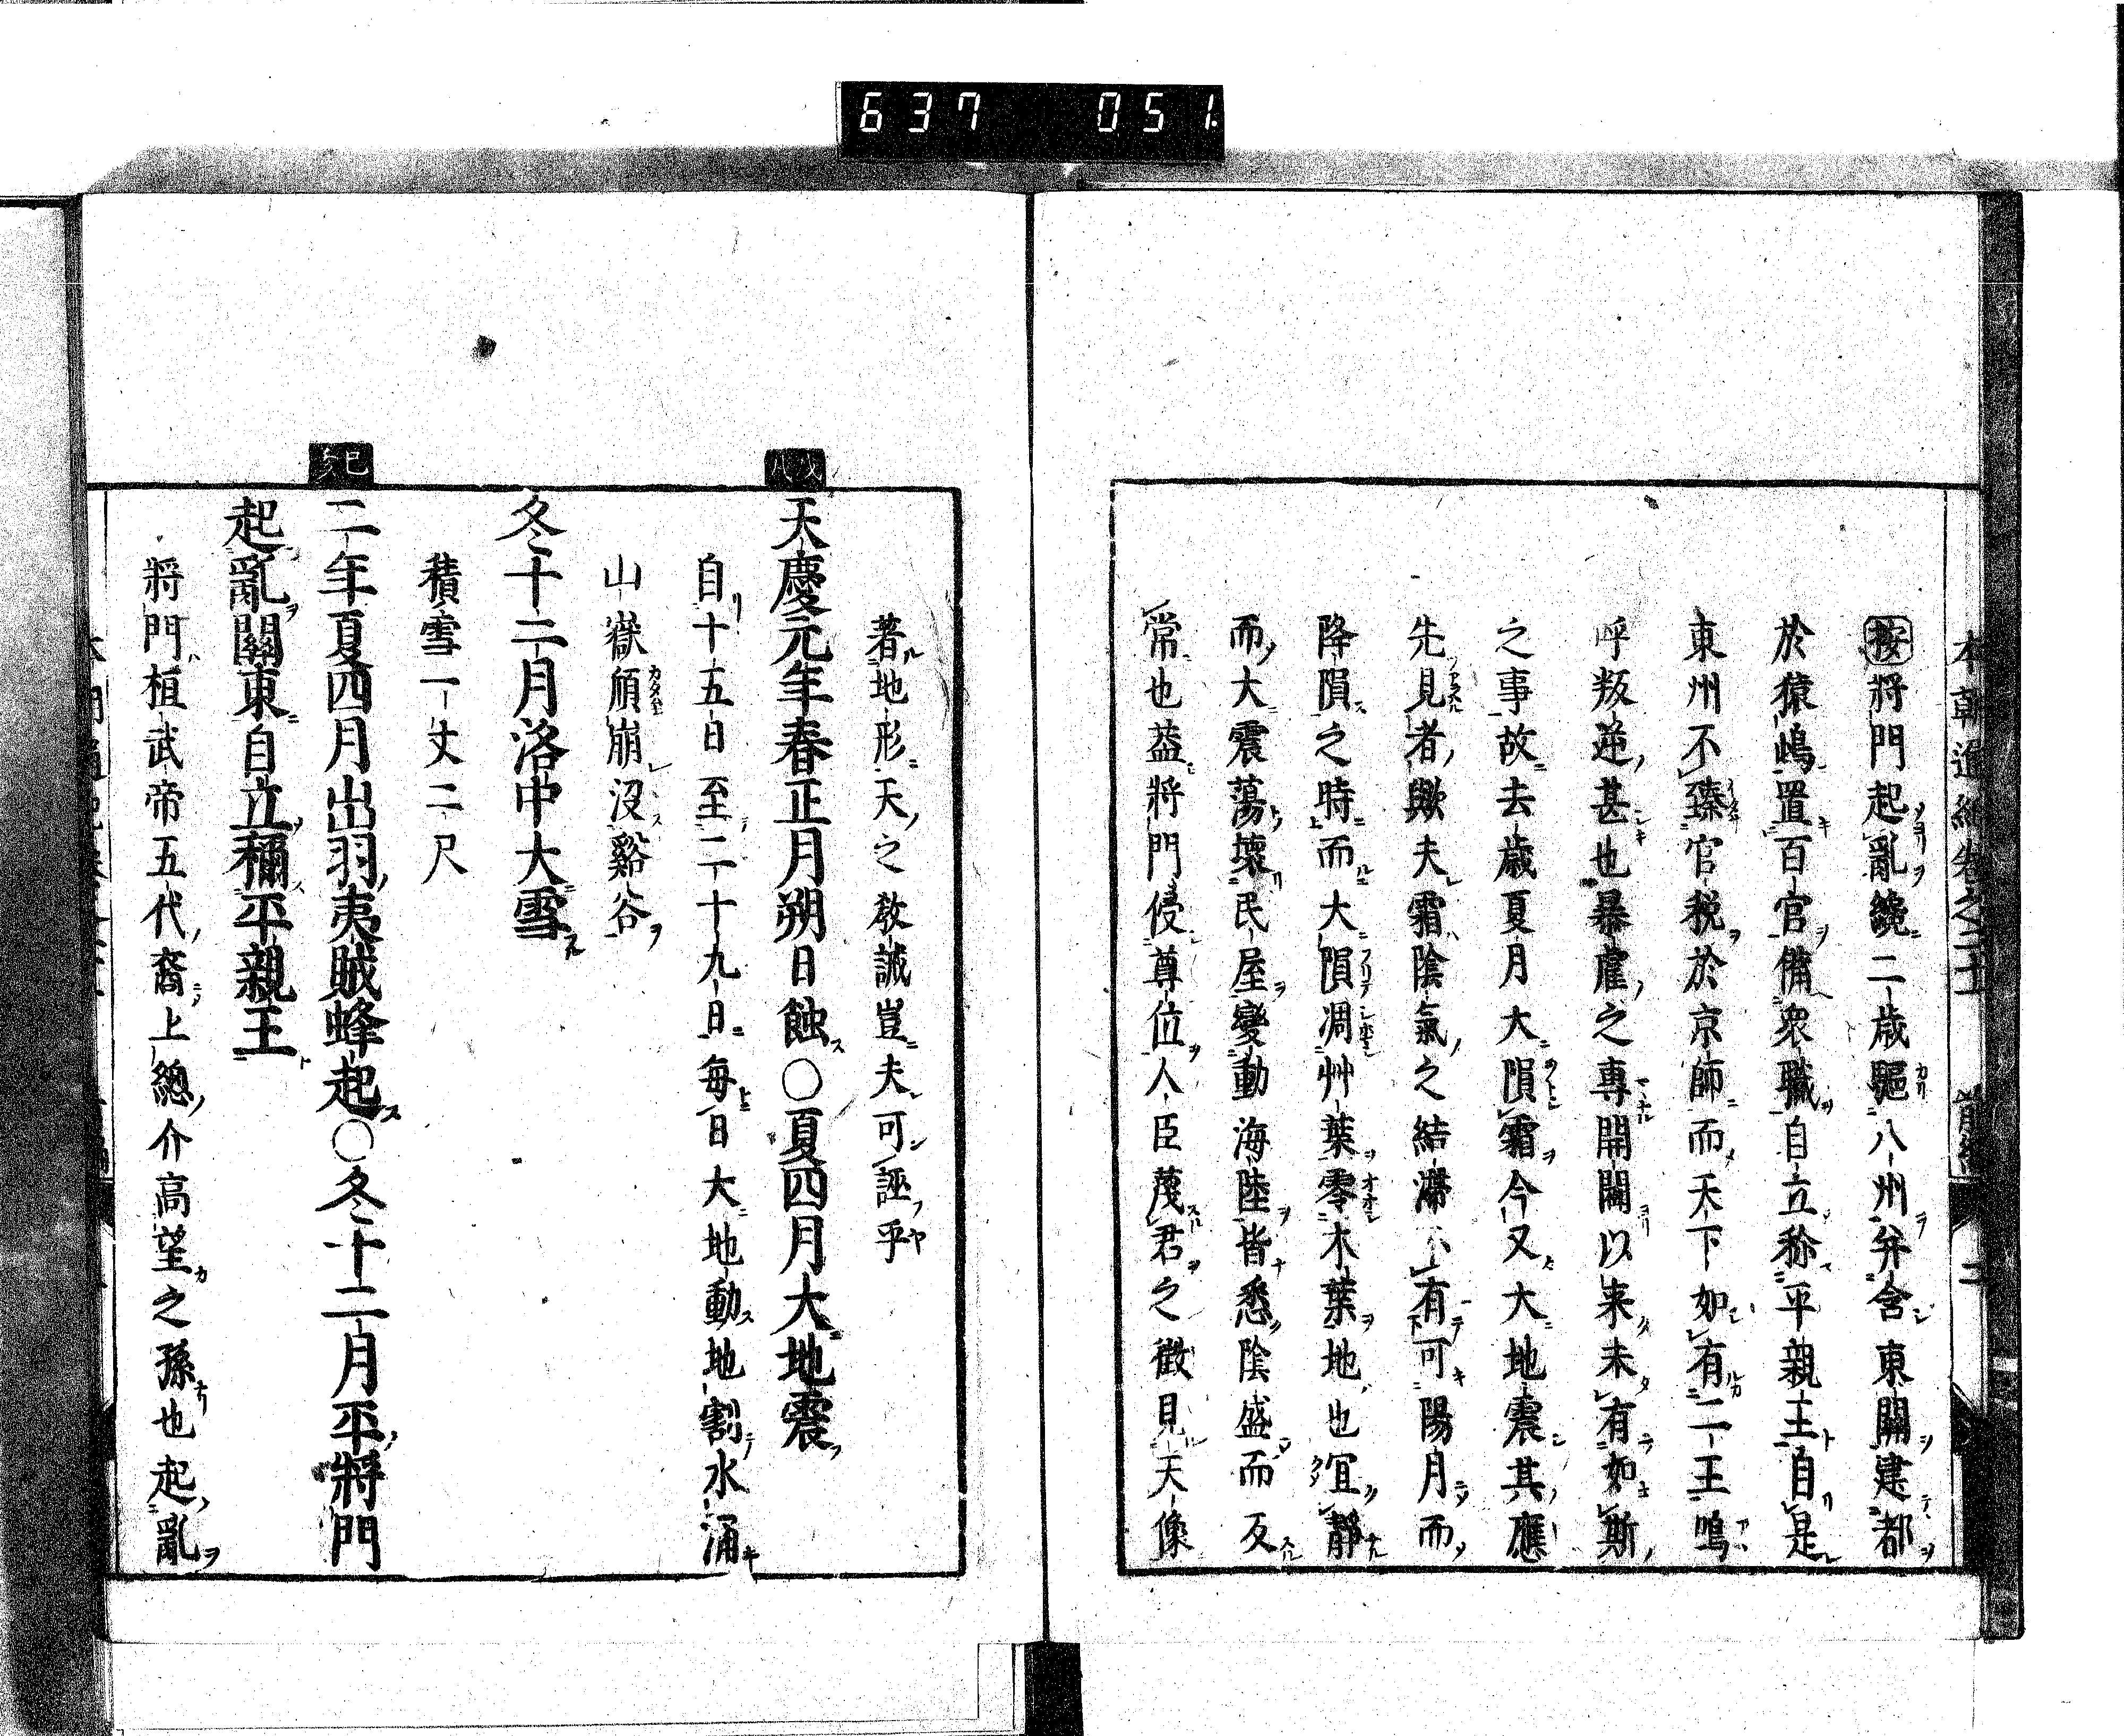 637 051
本朝通紀卷之二十一 前編 二
按將門起亂纔二歲驅八州弁含東關建都
於猿嶋置百官備衆職自立称平親王自是
東州不臻官税於京師而天下如有二王嗚
呼叛逆甚也暴虐之專開闢以来未有如斯
之事故去歲夏月大隕霜今又大地震其應
先見者歟夫霜陰氣之結滯不有可陽月而
降隕之時而大隕凋艸葉零木葉地也宜靜
而大震蕩壞民屋變動海陸皆悉陰盛而反
常也葢將門侵尊位人臣蔑君之徵見天像
著地形天之敎誡豈夫可誣乎
天慶元年春正月朔日蝕〇夏四月大地震
自十五日至二十九日每日大地動地割水涌
山嶽頎崩沒谿谷
冬十二月洛中大雪
積雪一丈二尺
二年夏四月出羽夷賊蜂起〇冬十二月平將門
起亂關東自立稱平親王
將門桓武帝五代裔上總介高望之孫也起亂